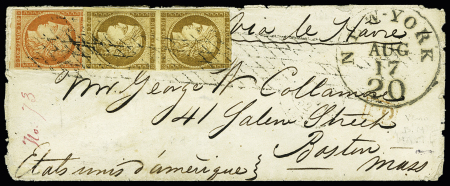 via le Havre
N-YORK
AUG
17
20
No. 73
Mr. George W Collamore
41 Salem Street
Boston
Mass
Etats unis d'amérique